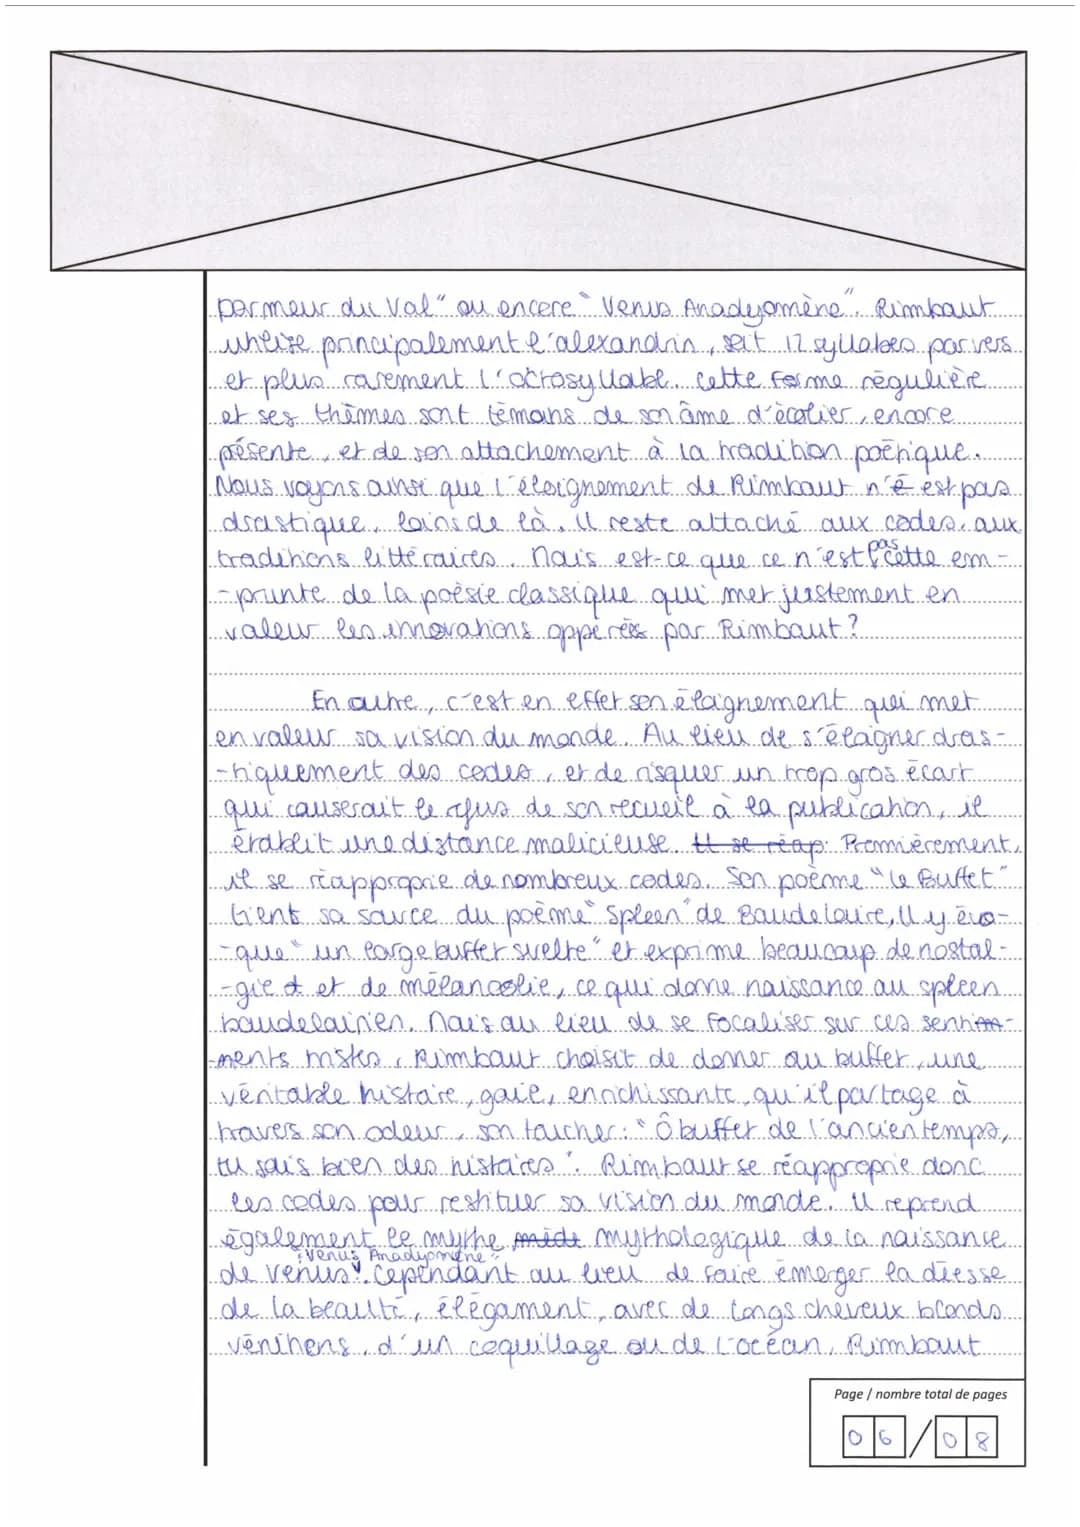 Dormeur du Val" ou encore "Venus Anadyomène". Rimbaut
utilise principalement l'alexandrin, soit 12 syllabes par vers
et plus rarement l'octosyllabe. cette forme régulière
et ses thèmes sont témoins de son âme d'écolier, encore
présente, et de son attachement à la tradition poétique.
Nous voyons ainsi que l'éloignement de Rimbaut n'é est pas
drastique, loins de là. Il reste attaché aux codes, aux
traditions littéraires. Mais est-ce que ce n'est pas cette em-
-prunte de la poésie classique qui met justement en
valeur les innovations oppérées par Rimbaut?
En outre, c'est en effet son éloignement qui met
en valeur sa vision du monde. Au lieu de s'éloigner dras-
-tiquement des codes, et de risquer un trop gros écart
qui causerait le refus de son recueil à la publication, il
établit une distance malicieuse. Il se réap. Premièrement,
il se réapproprie de nombreux codes. Son poème "Le Buffet"
tient sa source du poème "Spleen" de Baudelaire, Il y évo-
-que "un large buffet svelte" et exprime beaucoup de nostal-
-gie et de mélancolie, ce qui donne naissance au spleen
baudelairien. Mais au lieu de se focaliser sur ces senti-
-ments tristes, Rimbaut choisit de donner au buffet, une
véritable histoire, gaie, enrichissante, qu'il partage à
travers son odeur, son toucher: "Ô buffet de l'ancien temps,
tu sais bien des histoires". Rimbaut se réapproprie donc
les codes pour restituer sa vision du monde. Il reprend
également le mythe mythologique de la naissance
de Venus: "Venus Anadyomène". Cependant au lieu de faire émerger la déesse
de la beauté, élégament, avec de longs cheveux blonds
vénitiens, d'un coquillage ou de l'océan, Rimbaut
Page / nombre total de pages
06 / 08